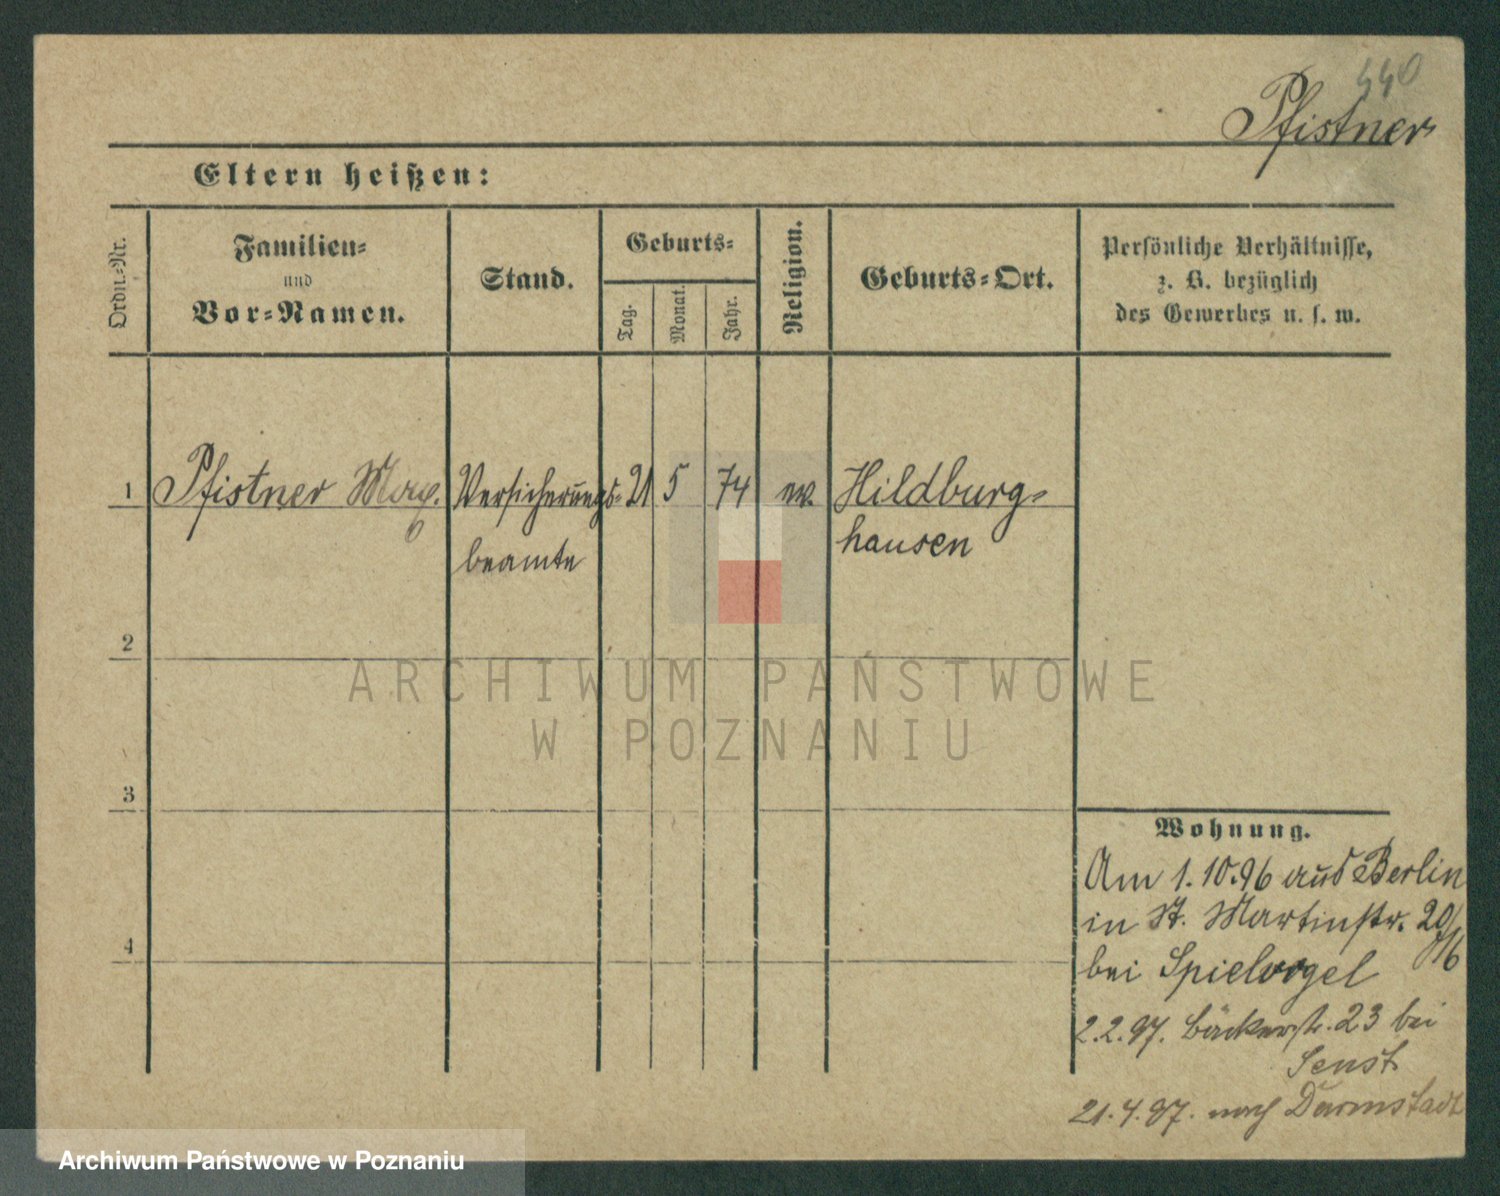 440
Pfistner
Eltern heißen:
Ordn.-Nr.
Familien-
und
Vor-Namen.
Stand.
Geburts-
Tag.
Monat.
Jahr.
Religion.
Geburts-Ort.
Persönliche Verhältnisse,
z. B. bezüglich
des Gewerbes u. s. w.
1 Pfistner Max. Versicherungs- 21 5 74 ev. Hildburg-
beamte hausen
2
3
4
Wohnung.
Am 1.10.96 aus Berlin
in St. Martinstr. 20/
bei Spielvogel
2.2.97. Bäckerstr. 23 bei
Senst
21.4.97. nach Darmstadt
ARCHIWUM PAŃSTWOWE
W POZNANIU
Archiwum Państwowe w Poznaniu